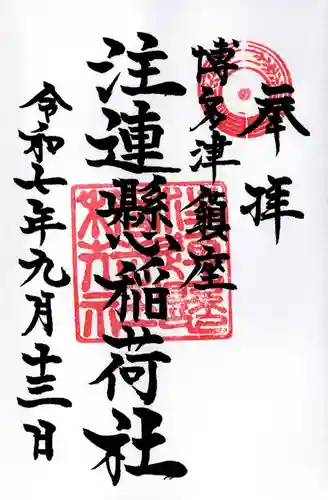 奉拝
博多津鎮座
注連懸稲荷社
令和七年九月十三日